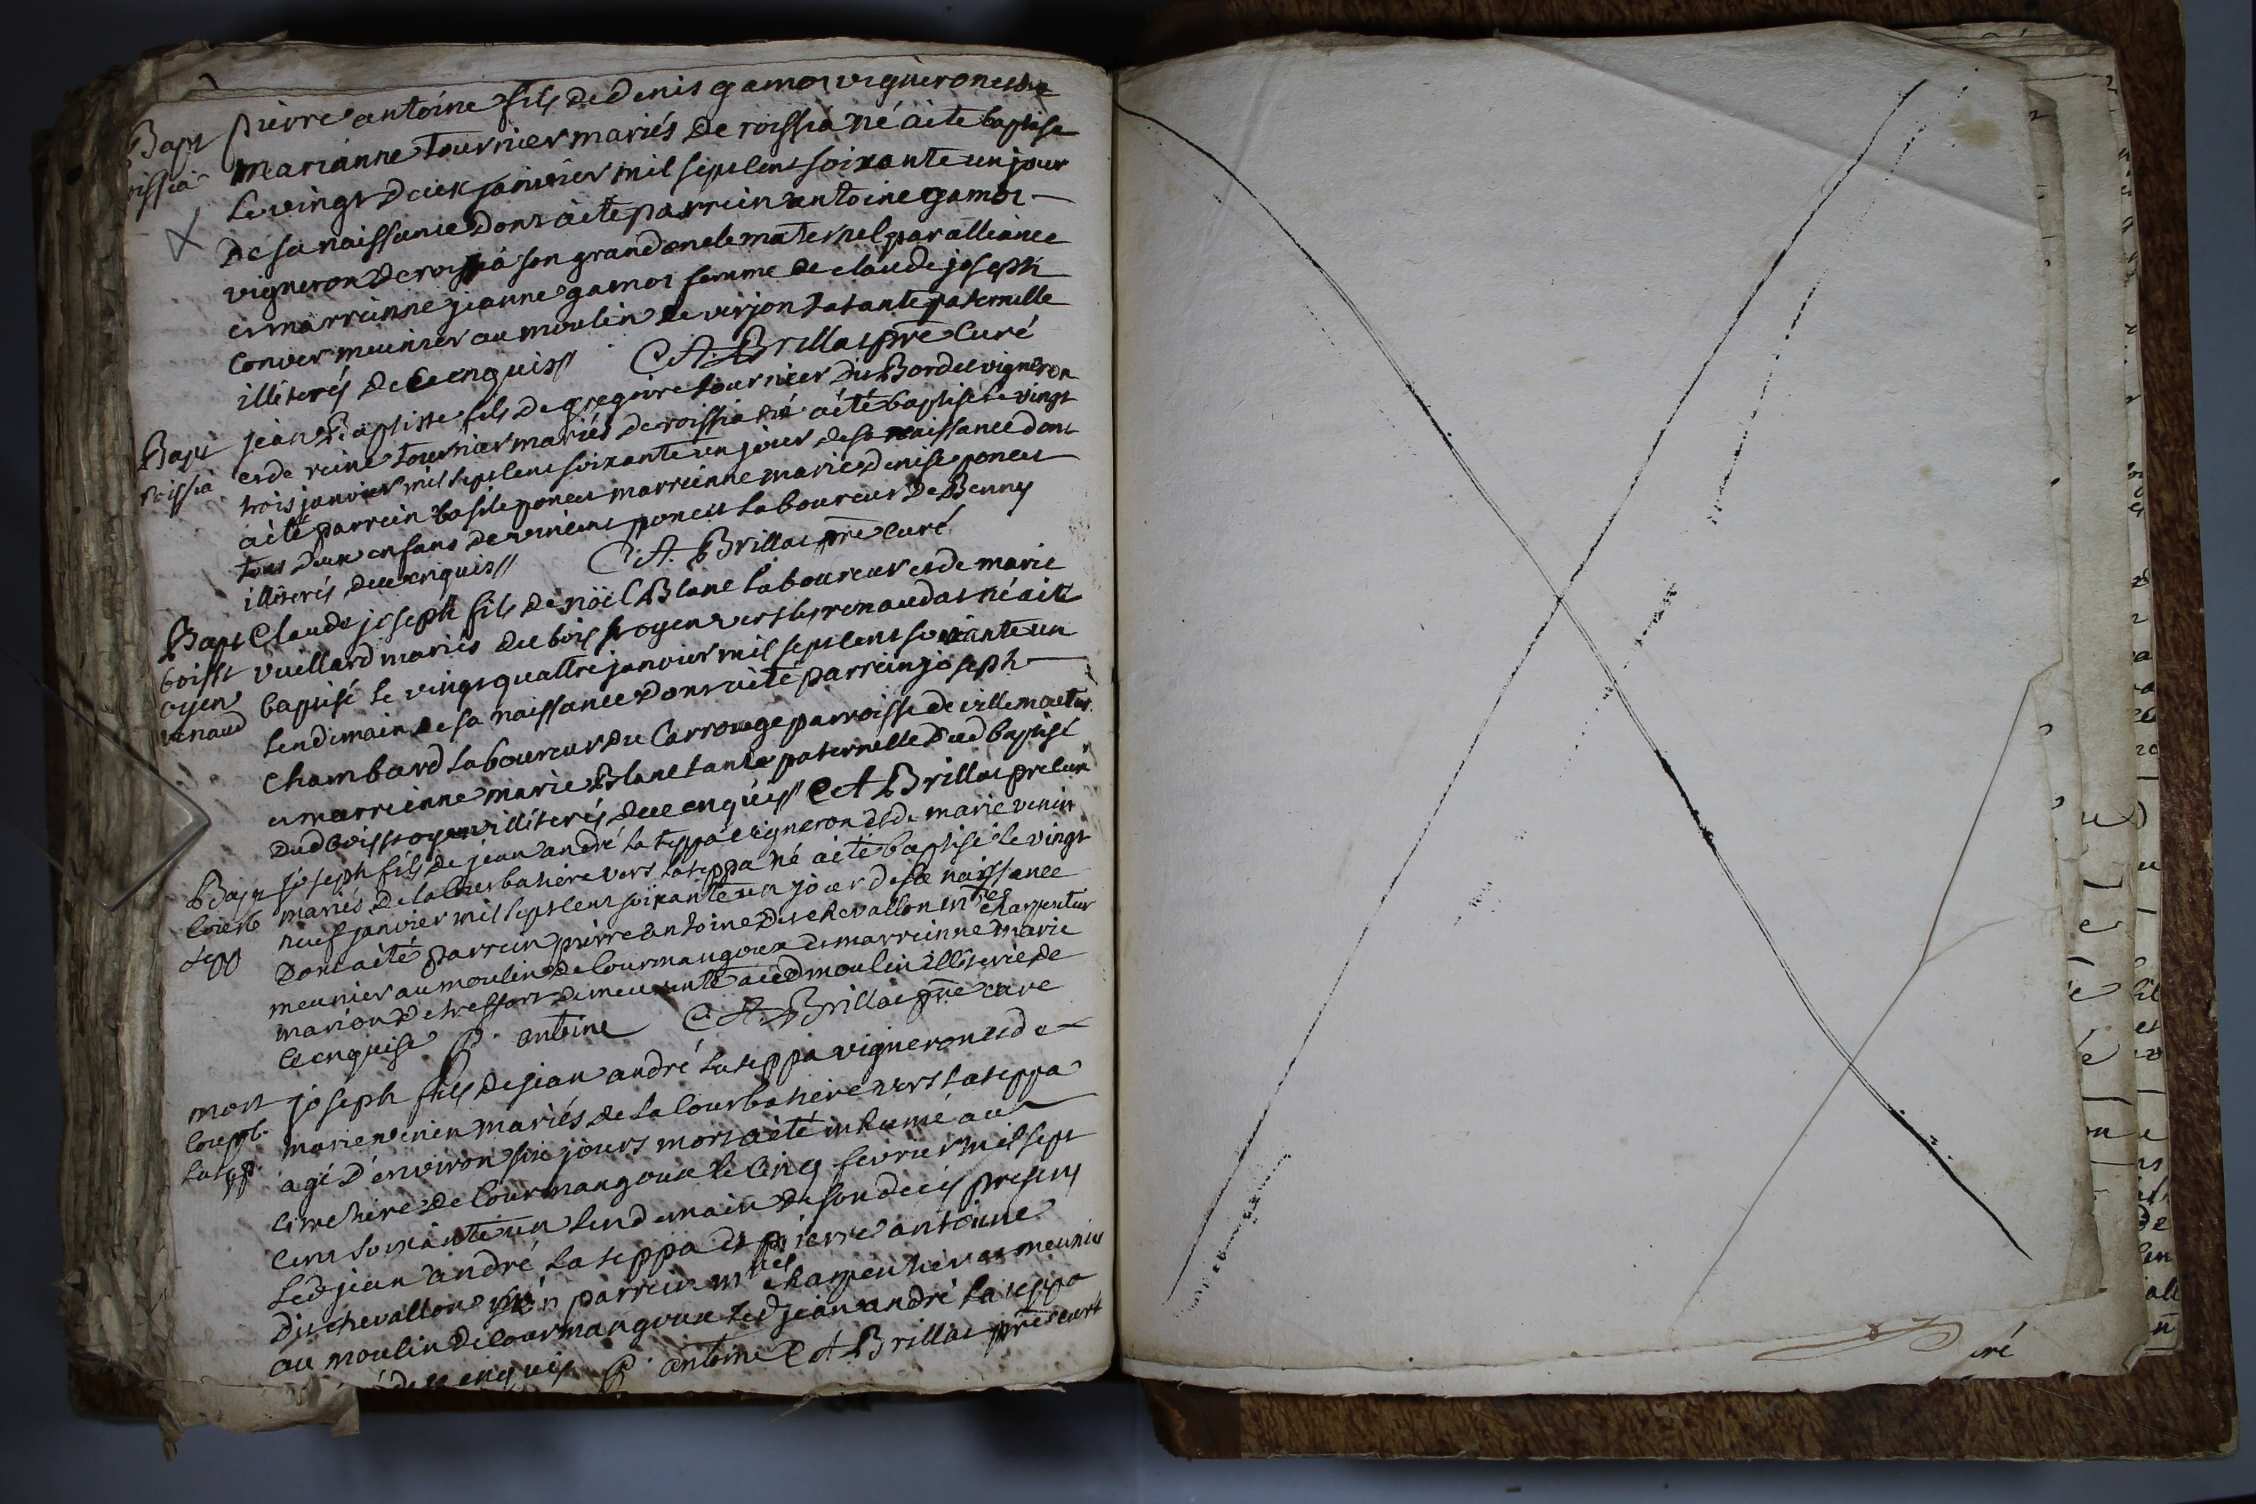 Bapt pierre antoine fils de denis gamoz vigneron et de
roissia marianne tournier mariés de roissia né a été baptisé
le vingt deux janvier mil sept cent soixante un jour
de sa naissance dont a été parrein antoine gamoz
vigneron de roissia son grand oncle maternel par alliance
et marreinne jeanne gamoz femme de claude joseph
conver meunier au moulin de verjon sa tante paternelle
illiterés de ce enquis// C A. Brillat pre curé
Bapt jean Baptiste fils de gregoire tournier dit Bordet vigneron
roissia et de reine tournier mariés de roissia né a été baptisé le vingt
trois janvier mil sept cent soixante un jour de sa naissance dont
a été parrein basile poncet marreinne marie denise poncet
tous deux enfans de vincent poncet laboureur de Benny
illiterés de ce enquis// C. A. Brillat pre curé
Bapt Claude joseph fils de noël Blanc laboureur et de marie
boisst vuillard mariés du bois st oyen vers les renaudat né a été
oyen baptisé le vingt quattre janvier mil sept cent soixante un
renaud lendemain de sa naissance dont a été parrein joseph
chambard laboureur du Carrouge parroisse de villemoutier
et marreinne marie Blanc tante paternelle dud baptisé
dud bois st oyen illiterés de ce enquis// C A Brillat pre curé
Bapt joseph fils de jean andré la teppa vigneron et de marie venin
Courb mariés de la Courbatiere vers la teppa né a été baptisé le vingt
tepp neuf janvier mil sept cent soixante un jour de sa naissance
dont a été parrein pierre antoine dit chevallon mtre charpentier
meunier au moulin de Courmangoux et marreinne marie
marion de tressort demeurante aud moulin illiterée de
ce enquise P. antoine C. A. Brillat pre curé
mort joseph fils de jean andré la teppa vigneron et de
marie venin mariés de la Courbatiere vers la teppa
la tepp agé d'environ six jours mort a été inhumé au
cimetiere de Courmangoux le cinq fevrier mil sept
cent soixante un lendemain de son decès presens
led jean andré la teppa et pierre antoine
dit chevallon son parrein mtre charpentier et meunier
au moulin de courmangoux led jean andré la teppa
de ce enquis P. antoine C A Brillat pre curé
ré